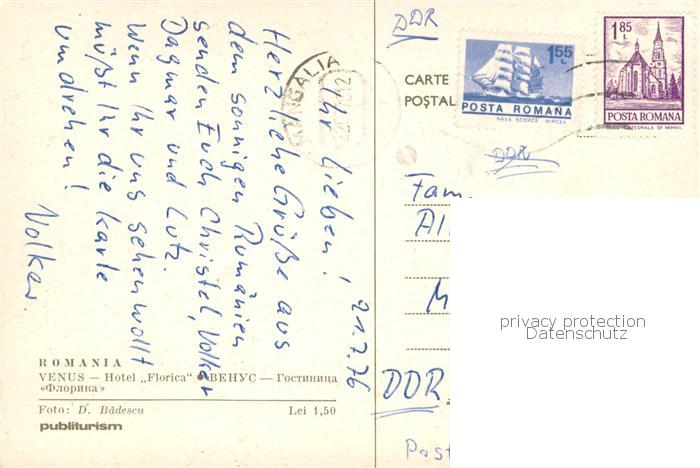 DDR
CARTE
POȘTALĂ
1.55
L
POSTA ROMANA
NAVA SCOALA MIRCEA
1.85
L
POSTA ROMANA
CLUJ CATEDRALA SF. MIHAIL
MANGALIA
DDR
21.7.76
Ihr Lieben!
Herzliche Grüße aus
dem sonnigen Rumänien
senden Euch Christel, Volker
Dagmar und Lutz.
Wenn Ihr uns sehen wollt
müßt Ihr die Karte
umdrehen!
Volker.
Fam.
Al
M
DDR
Post
privacy protection
Datenschutz
ROMANIA
VENUS — Hotel „Florica" ● ВЕНУС — Гостиница
«Флорика»
Foto: D. Bădescu Lei 1,50
publiturism